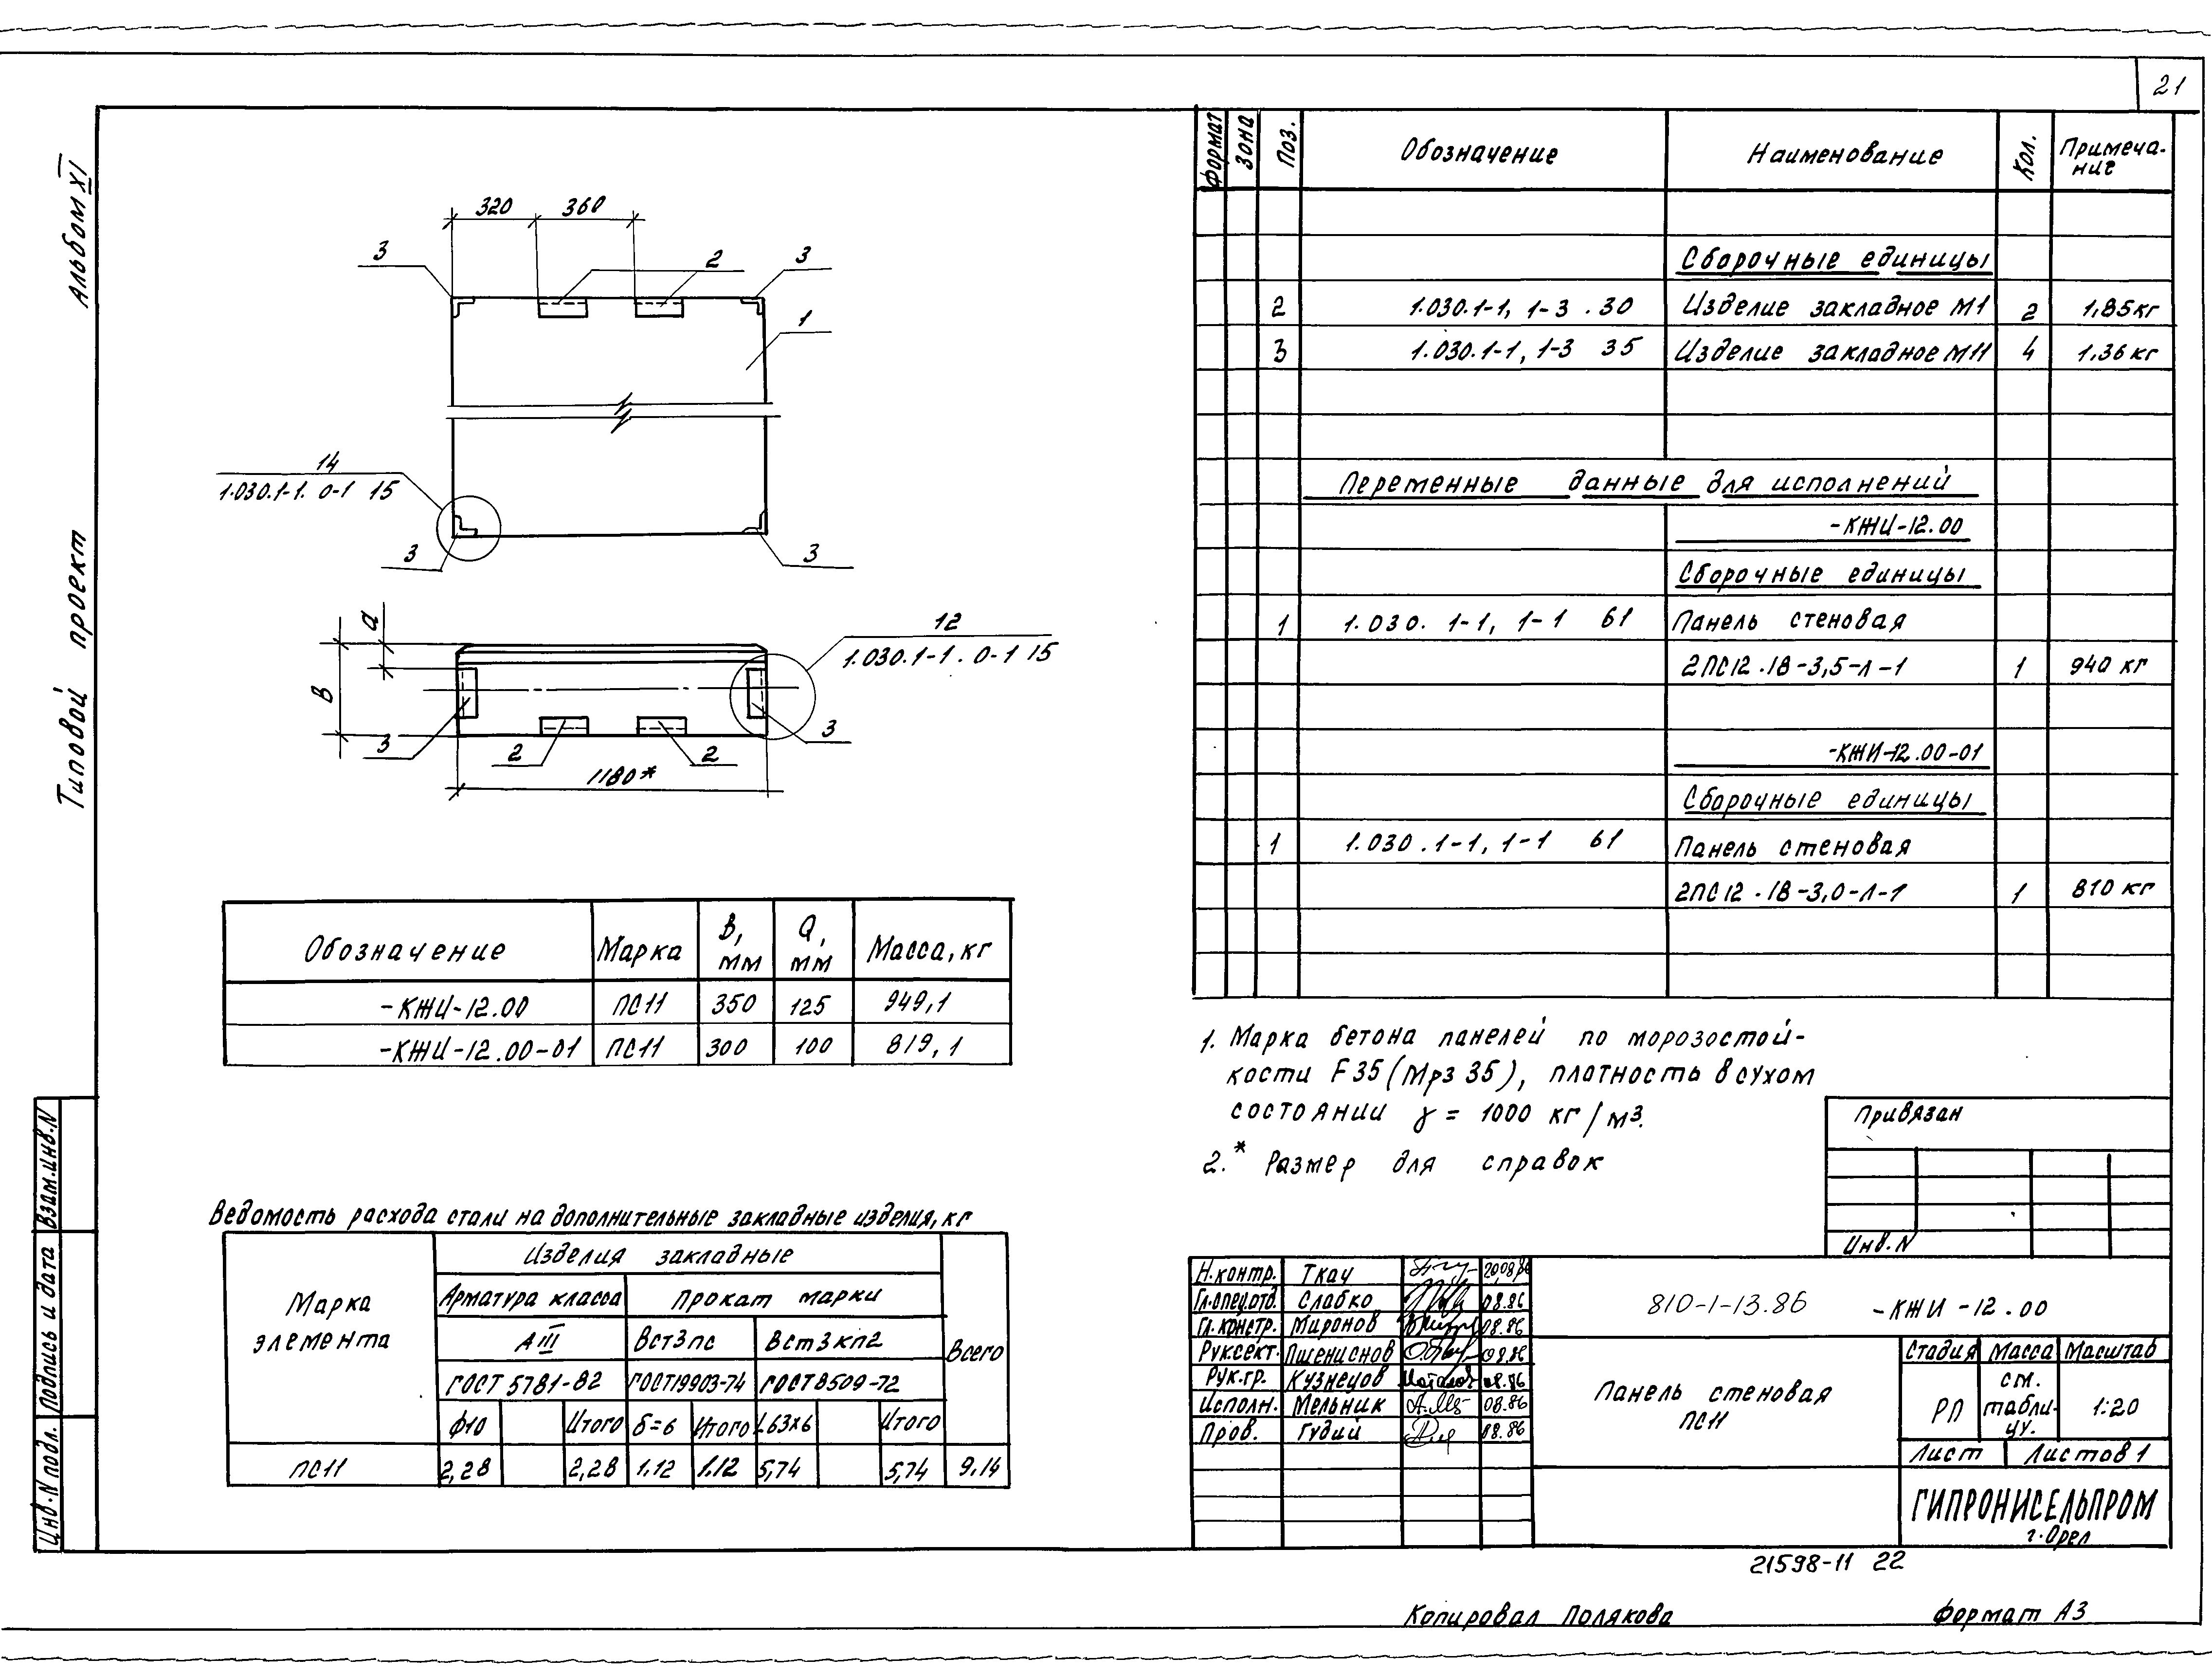 21
Альбом XI
Типовой проект
Взам.инв.N
Подпись и дата
Инв.N подл.
320 360
3 2 3
1
14
1.030.1-1. 0-1 15
3 3
а
В
12
1.030.1-1. 0-1 15
3 2 2 3
1180*
Обозначение Марка В, мм а, мм Масса, кг
-КЖИ-12.00 ПС11 350 125 949,1
-КЖИ-12.00-01 ПС11 300 100 819,1
Ведомость расхода стали на дополнительные закладные изделия, кг
Марка элемента
Изделия закладные
Всего
Арматура класса Прокат марки
АIII Вст3пс Вст3кп2
ГОСТ 5781-82 ГОСТ19903-74 ГОСТ8509-72
Ф10 Итого δ=6 Итого L63x6 Итого
ПС11 2,28 2,28 1.12 1.12 5,74 5,74 9.14
Формат Зона Поз. Обозначение Наименование Кол. Примеча-
ние
Сборочные единицы
2 1.030.1-1, 1-3 .30 Изделие закладное М1 2 1,85кг
3 1.030.1-1, 1-3 35 Изделие закладное М11 4 1.36 кг
Переменные данные для исполнений
-КЖИ-12.00
Сборочные единицы
1 1.030. 1-1, 1-1 61 Панель стеновая
2ПС12.18-3,5-Л-1 1 940 кг
-КЖИ-12.00-01
Сборочные единицы
1 1.030.1-1, 1-1 61 Панель стеновая
2ПС12.18-3,0-Л-1 1 810 кг
1. Марка бетона панелей по морозостой-
кости F35 (Мрз 35), плотность в сухом
состоянии γ = 1000 кг/м3.
2.* Размер для справок
Привязан
Инв.N
Н.контр. Ткач 20,08,86
Гл.спец.отд. Слабко 08.86
Гл.констр. Миронов 08.86
Рук.сект. Пшениснов 08.86
Рук.гр. Кузнецов 08.86
Исполн. Мельник 08.86
Пров. Гудий 08.86
810-1-13.86 -КЖИ-12.00
Панель стеновая
ПС11
Стадия Масса Масштаб
РП см.
табли-
цу. 1:20
Лист Листов 1
ГИПРОНИСЕЛЬПРОМ
г.Орел
21598-11 22
Копировал Полякова Формат А3